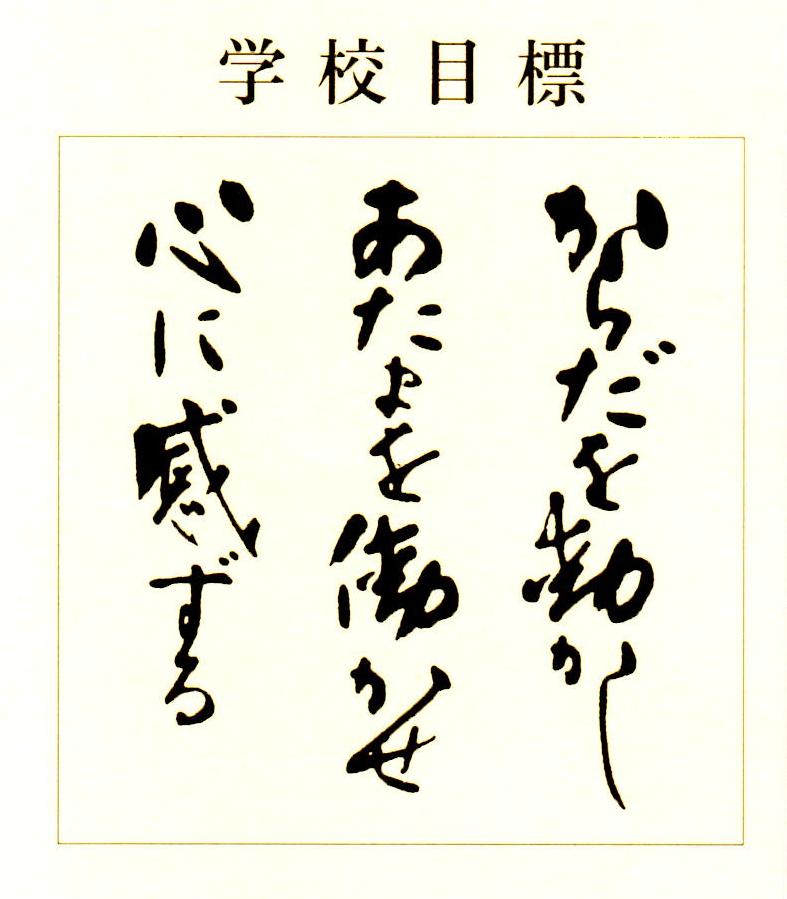 学校目標
からだを動かし
あたまを働かせ
心に感ずる